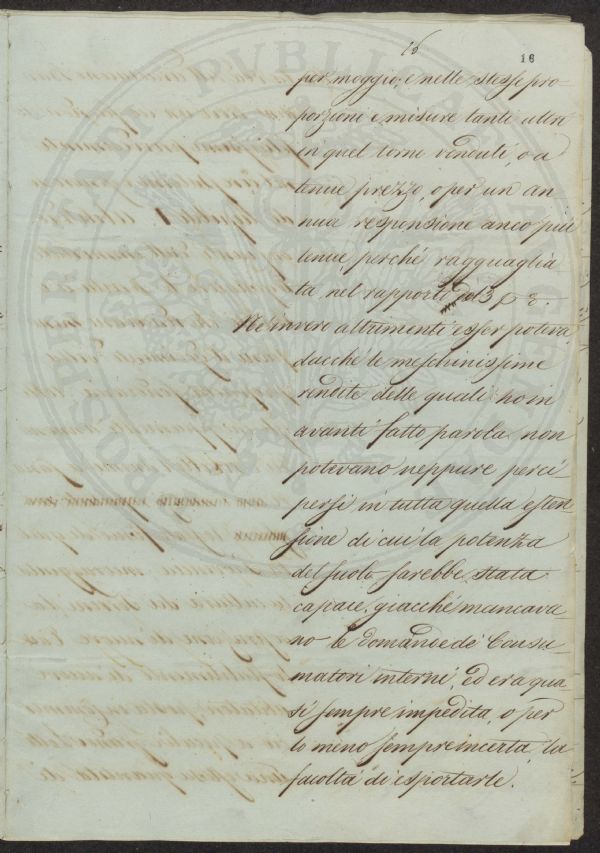 16
16
per moggio; e nelle stesse pro-
porzioni e misure tanti altri
in quel torno venduti, o a
tenue prezzo, o per un an
nua responsione anco più
tenue, perchè ragguaglia
ta, nel rapporto del 3 p %.
Ne invero altrimenti esser poteva
dacchè le meschinissime
rendite delle quali ho in
avanti fatto parola non
potevano neppure perci
persi in tutta quella esten-
sione di cui la potenza
del suolo sarebbe stata
capace, giacchè mancava-
no le domande de' Consu
matori interni, ed era qua
si sempre impedita, o per
lo meno sempre incerta, la
facoltà di esportarle.